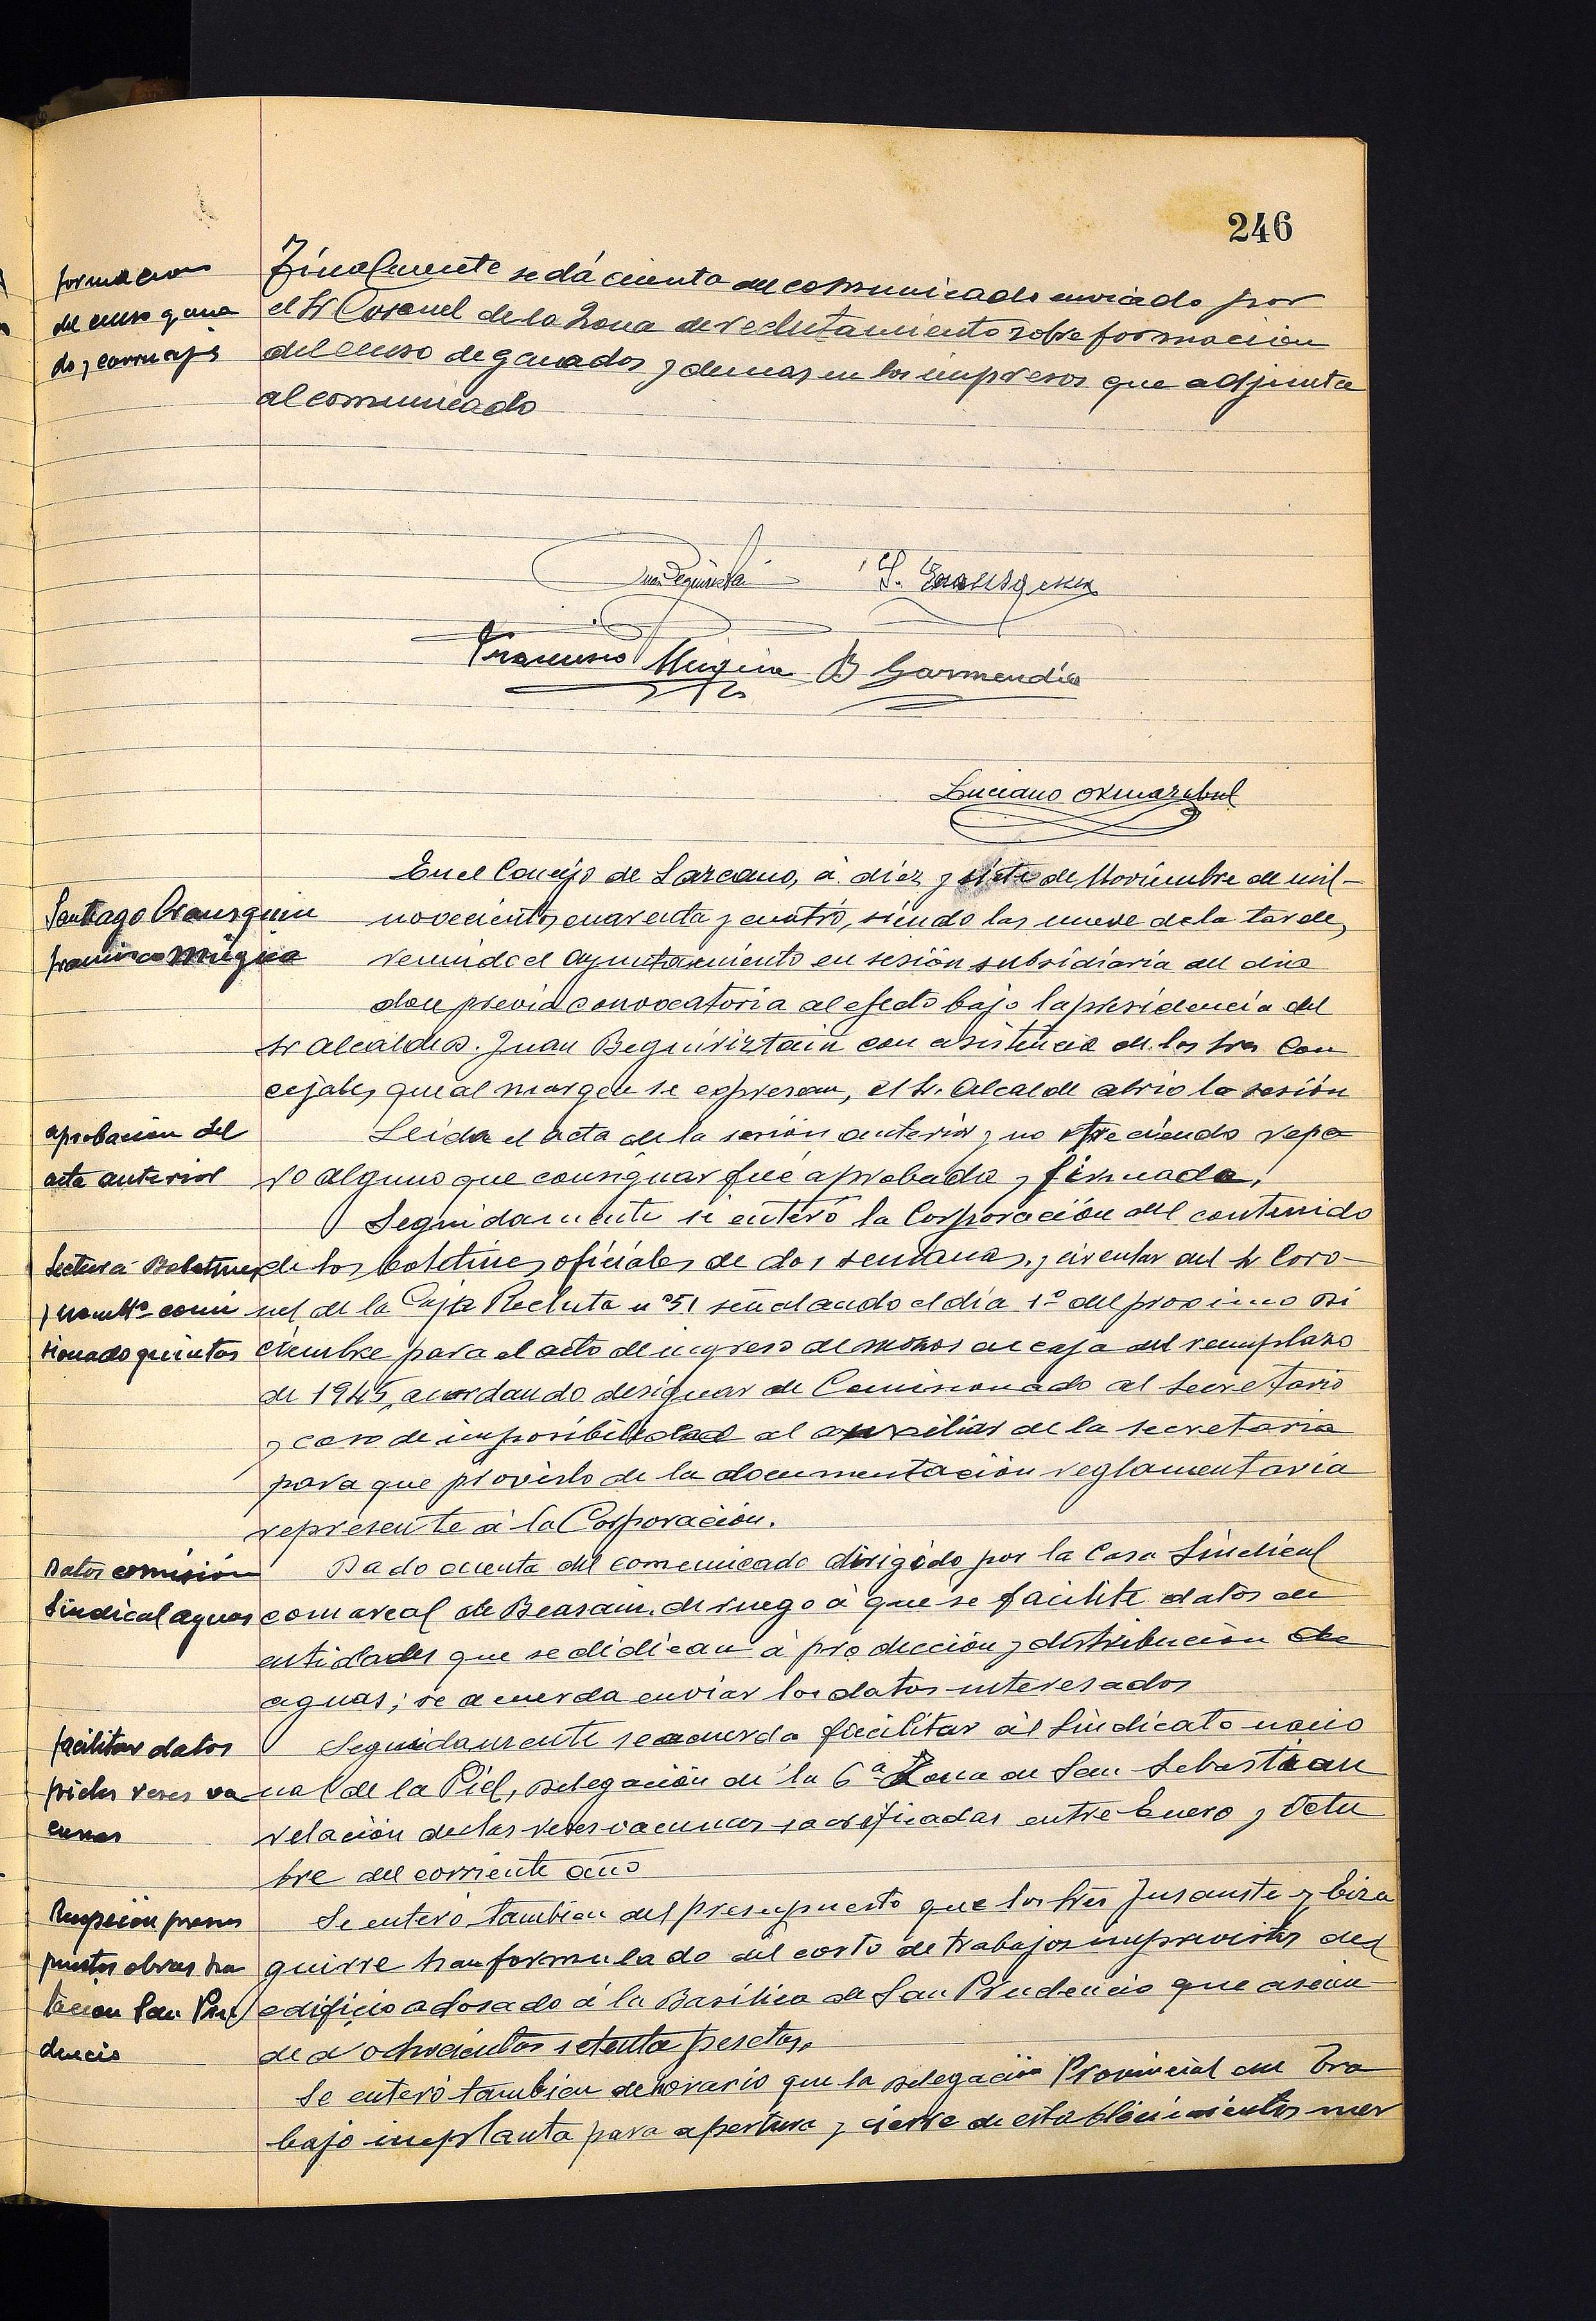 246
formacion
del censo gana
do y carruajes
Finalmente se dá cuenta del comunicado enviado por
el Sr Coronel de la Zona de reclutamiento sobre formacion
del censo de ganados y demas en los impresos que adjunta
al comunicado
Francisco Mugica B Garmendia
Luciano
Santiago Ocausquin
Francisco Mugica
En el Concejo de Lazcano, á diez y siete de Noviembre de mil-
novecientos cuarenta y cuatro, siendo las nueve de la tarde,
reunido el Ayuntamiento en sesión subsidiaria del dia
doce previa convocatoria al efecto bajo la presidencia del
Sr Alcalde D. Juan Beguiriztain con asistencia de los Sres Con
cejales que al margen se expresan, el Sr. Alcalde abrio la sesión
aprobacion del
acta anterior
Leida el acta de la sesión anterior y no ofreciendo repa
ro alguno que consignar fué aprobada y firmada.
Seguidamente se enteró la Corporación del contenido
Lectura Boletines
y nombto comi
sionado quintos
de los boletines oficiales de dos semanas, y circular del Sr Coro-
nel de la Caja Recluta nº 51 señalando el dia 1º del proximo Di
ciembre para el acto de ingreso de mozos en caja del reemplazo
de 1945, acordando designar de Comisionado al Secretario
y caso de imposibilidad al auxiliar de la secretaria
para que provisto de la documentación reglamentaria
represente á la Corporación.
Datos comisión
Sindical aguas
Dado cuenta del comunicado dirigido por la Casa Sindical
comarcal de Beasain. de ruego á que se facilite datos de
entidades que se didican á producción y distribucion de
aguas; se acuerda enviar los datos interesados
facilitar datos
pieles reses va
cunas
Seguidamente se acuerda facilitar al Sindicato nacio
nal de la Piel, Delegación de la 6ª Zona de San Sebastian
relación de las reses vacunas sacrificadas entre Enero y Octu
bre del corriente año
Recepción presu
puestos obras
San Pru
dencio
Se enteró tambien del presupuesto que los Sres Jusauste y Eiza
guirre han formulado del costo de trabajos imprevistos del
edificio adosado á la Basilica de San Prudencio que ascien
de a ochocientas setenta pesetas.
Se enteró tambien de horario que la Delegación Provincial del Tra
bajo implanta para apertura y cierre de establecimientos mer